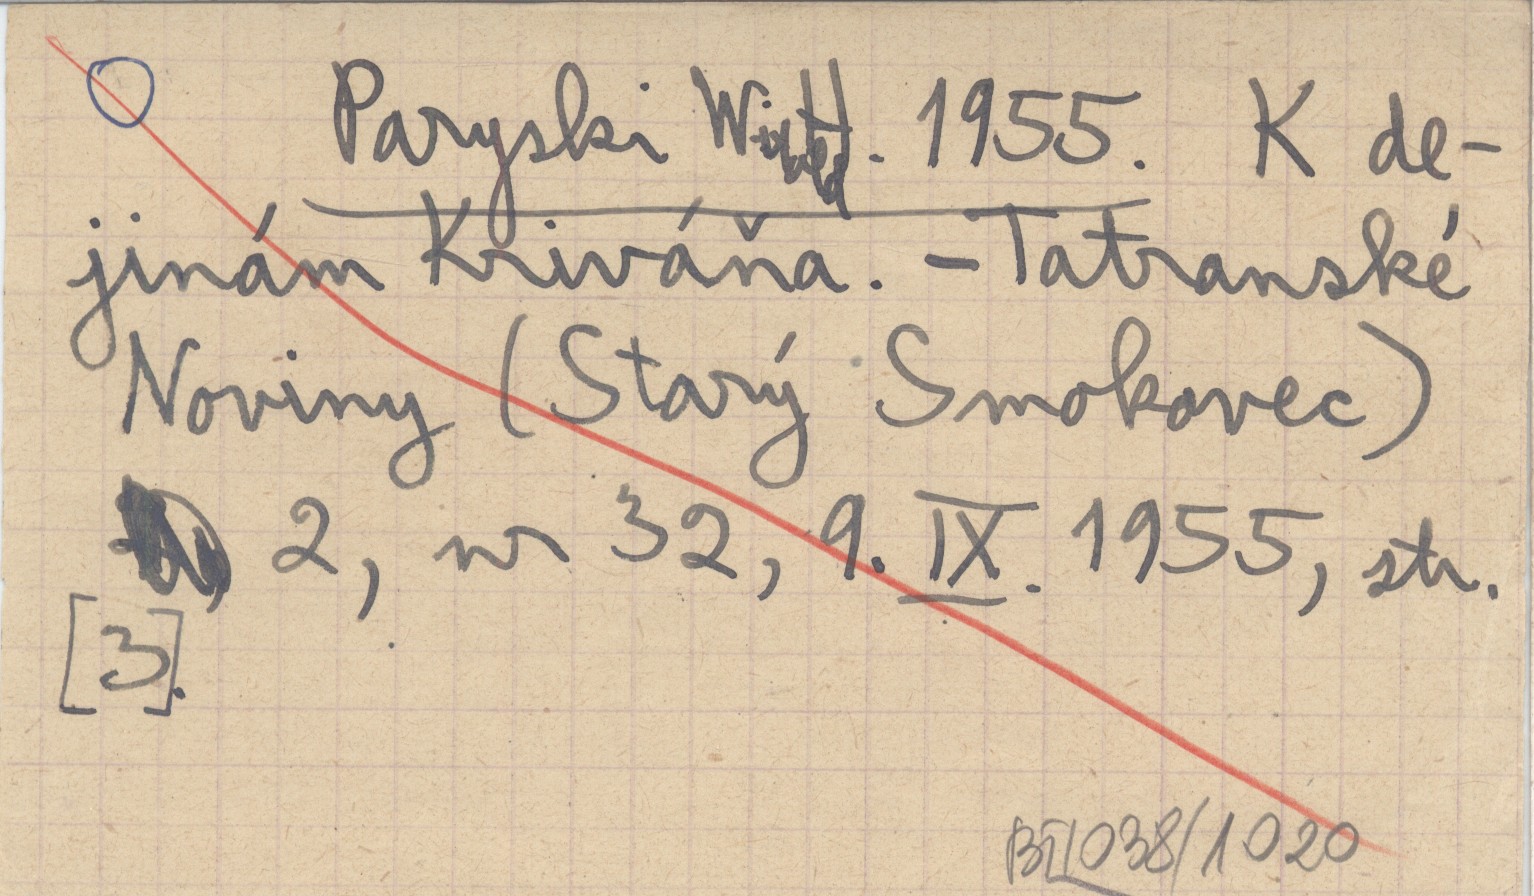 Paryski Witold. 1955. K de-
jinám Kriváňa. - Tatranské
Noviny (Starý Smokovec)
2, nr 32, 9. IX. 1955, str.
[3].
038/1020